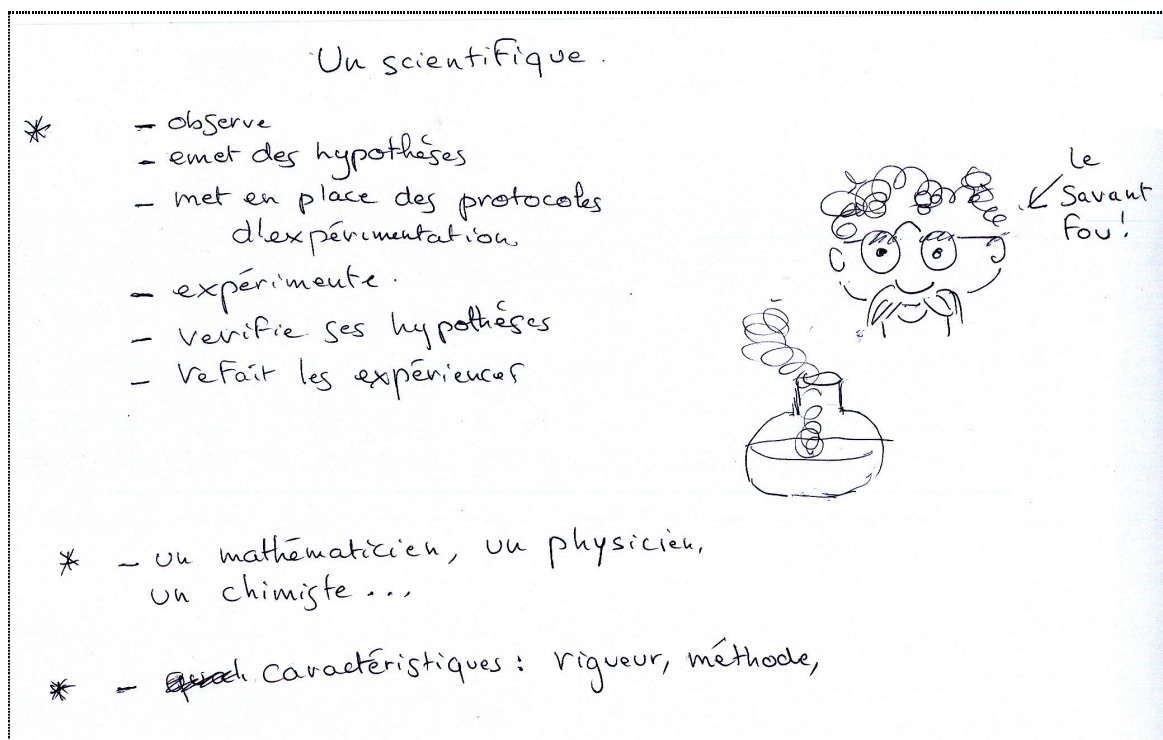 Un scientifique.
* - observe
- emet des hypothèses
- met en place des protocoles
d'expérimentation
- expérimente.
- verifie ses hypothèses
- refait les expériences
le
Savant
Fou!
* - un mathématicien, un physicien,
un chimiste...
* - caractéristiques : rigueur, méthode,